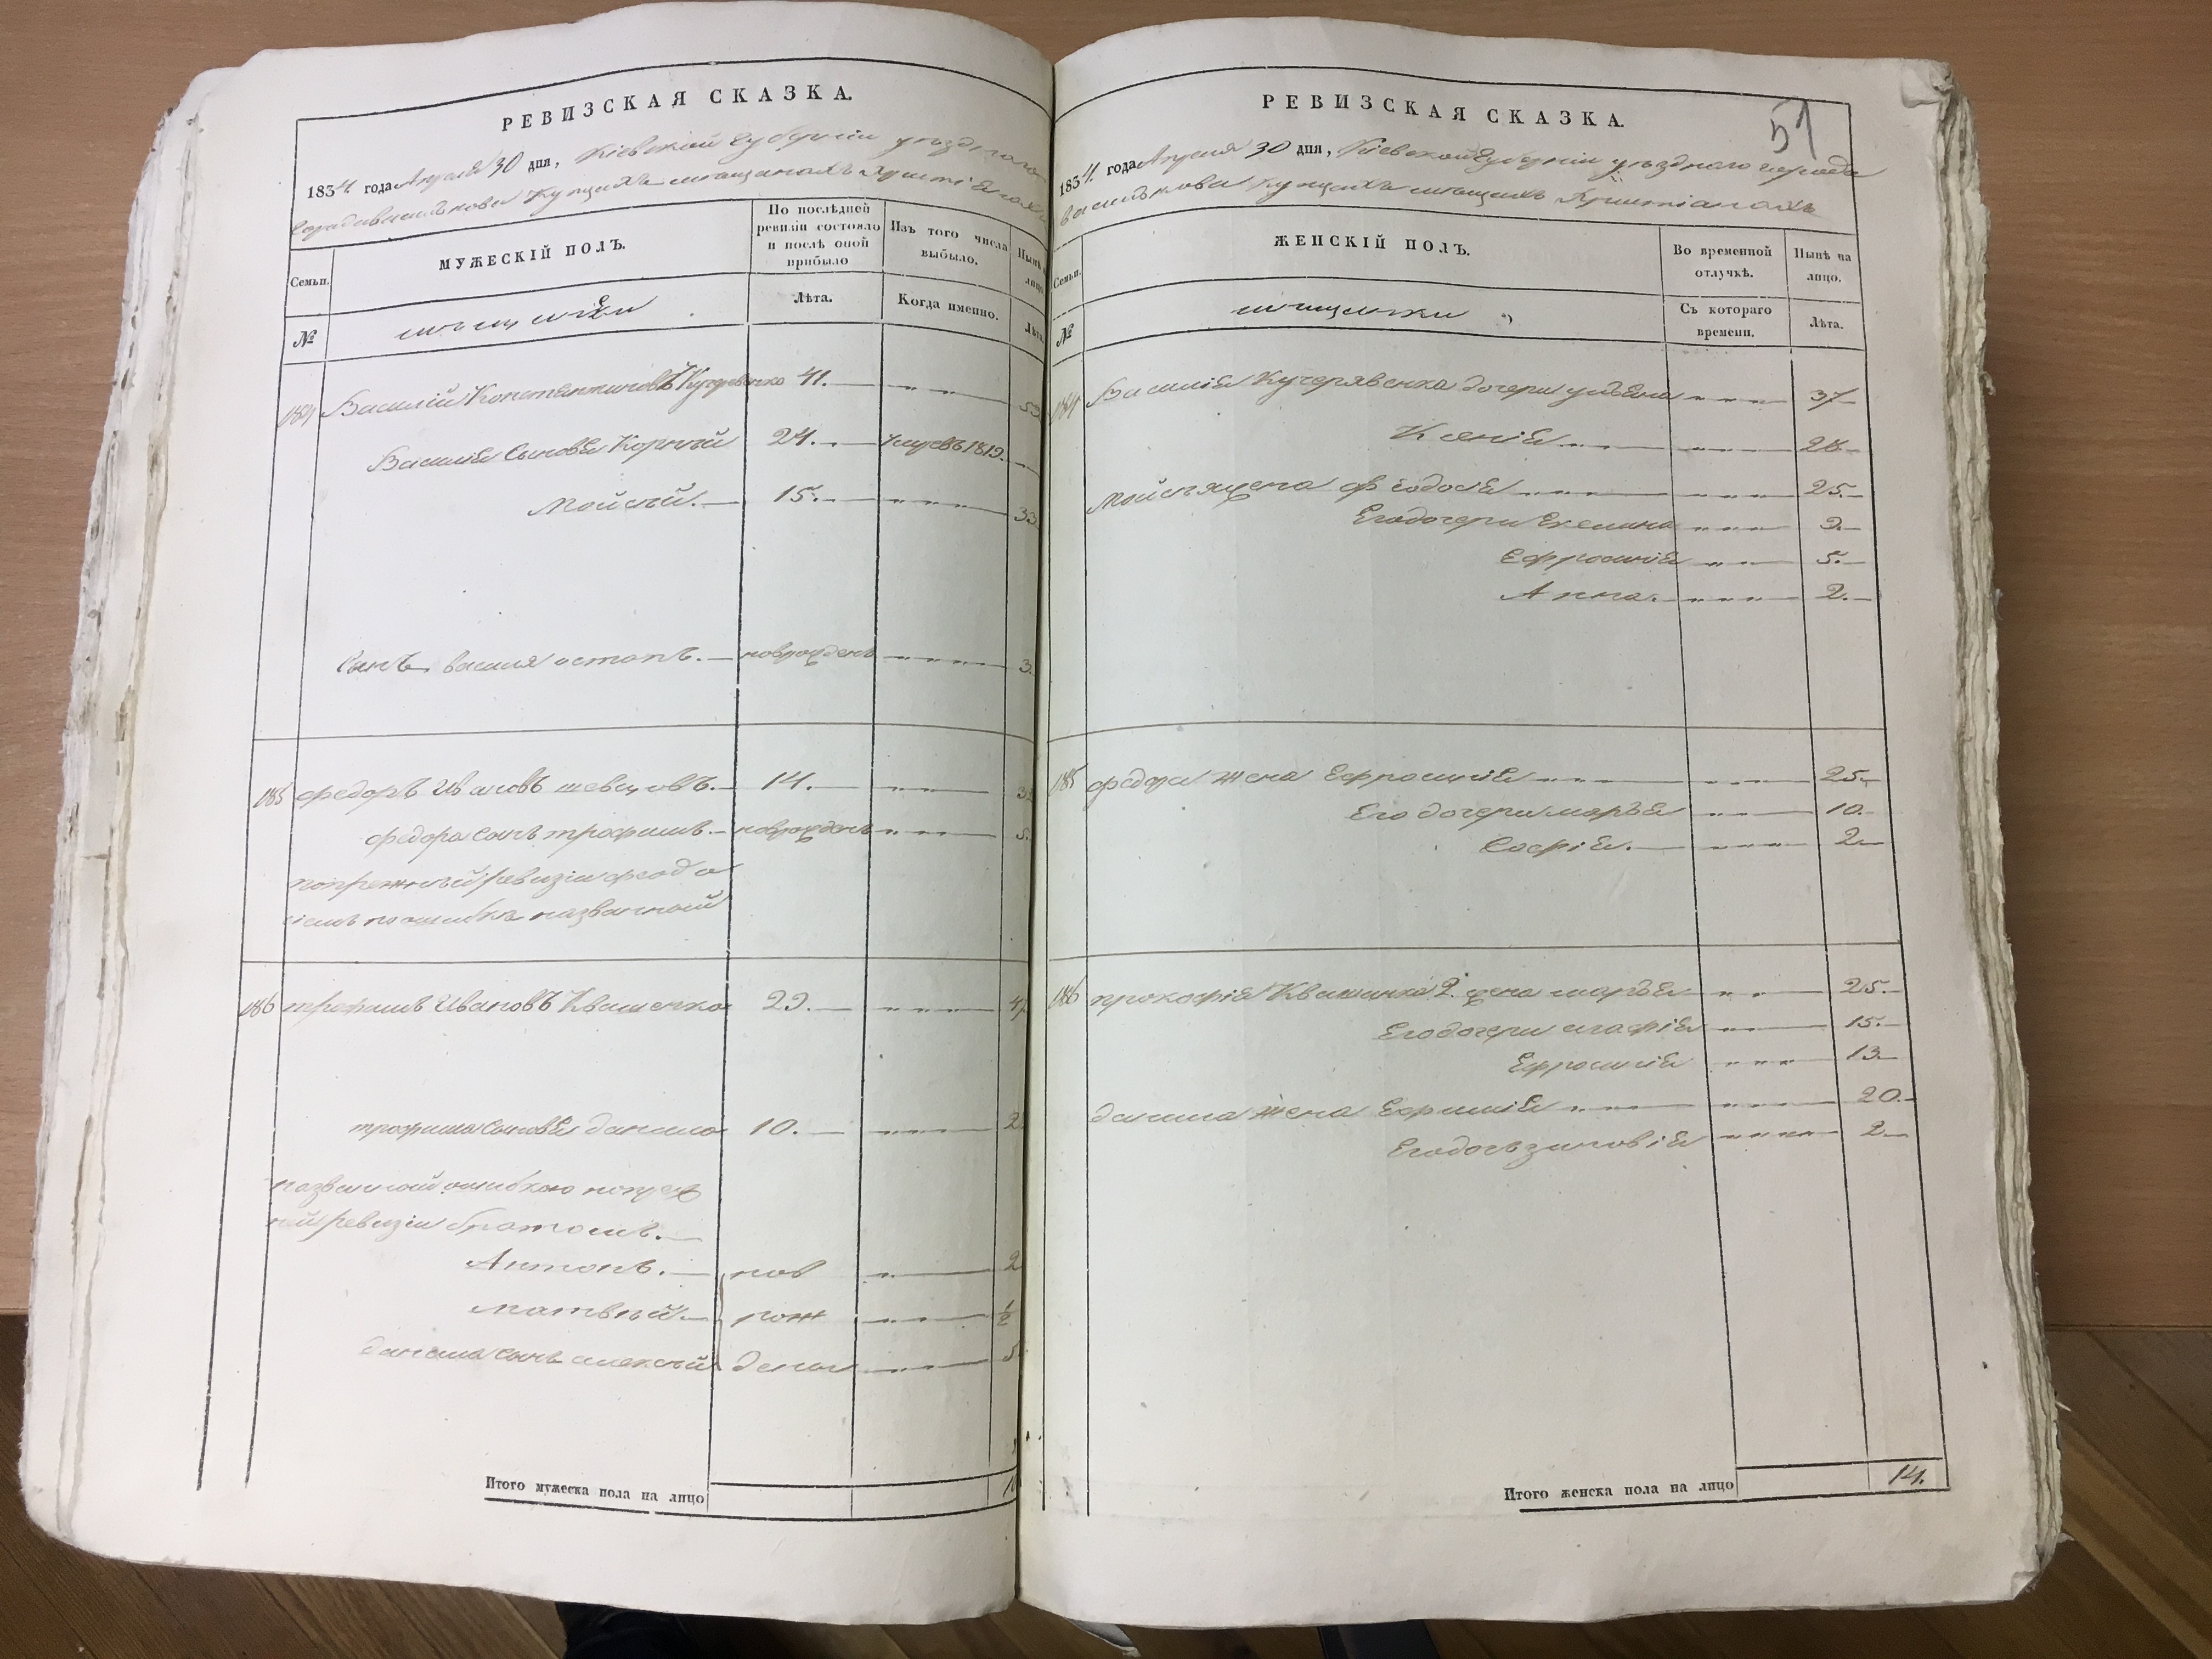 РЕВИЗСКАЯ СКАЗКА.
1834 года Апреля 30 дня, Кіевской Губерніи уездного
Города василькова Купцахъ мещанахъ
Семьи.
МУЖЕСКІЙ ПОЛЪ.
По последней ревизіи состояло и после оной прибыло
Изъ того числа выбыло.
Ныне
лицо
№
мещане
Лѣта.
Когда именно.
Лѣта
184 Василій Константиновъ 41.
Василія Сыновья Корній 24. умре въ 1819.
Мойсей. 15. 33
Сынъ василя остапъ. новрожденъ 3.
185 федоръ Ивановъ шевцовъ. 14.
федора сынъ трофимъ. новрожденъ 5.
попрежней ревизіи феодо
сіемъ по ошибке названный
186 трофимъ Ивановъ Квашенко 29. 47
трофима сыновья данило 10. 2
названной ошибкою попреж
ней ревизіи братомъ.
Антонъ. нов 2
матвей. рож ½
данила сынъ алексей дены 5
Итого мужеска пола на лицо
РЕВИЗСКАЯ СКАЗКА.
51
1834 года Апреля 30 дня, Кіевской Губерніи уездного города
василькова Купцахъ
Семьи.
ЖЕНСКІЙ ПОЛЪ.
Во временной отлучкѣ.
Нынѣ на лицо.
№
мещанки
Съ котораго времени.
Лѣта.
184 Василія Кучерявенка дочери ульяна 37
Ксенія 28
Мойсея жена феодосія 25.
Его дочери Екелина 9.
Ефросинія 5.
Анна. 2.
185 федора жена Ефросинія 25.
Его дочери марья 10.
Софія. 2
186 прокофія Квашенка 2. жена марья 25.
Его дочери агафія 15.
Ефросинія 13
данила жена Ефимія 20.
Его дочь зиновія 2
Итого женска пола на лицо 14.